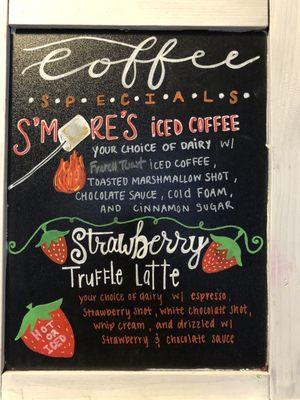 Coffee
SPECIALS
S'MORE'S ICED COFFEE
YOUR CHOICE OF DAIRY W/
French Toast ICED COFFEE,
TOASTED MARSHMALLOW SHOT,
CHOCOLATE SAUCE, COLD FOAM,
AND CINNAMON SUGAR
Strawberry
Truffle Latte
your choice of dairy w/ espresso,
Strawberry shot, white chocolate shot,
whip cream, and drizzled w/
Strawberry & chocolate sauce
HOT
OR
ICED